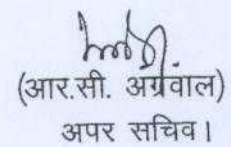 (आर.सी. अग्रवाल)
अपर सचिव।